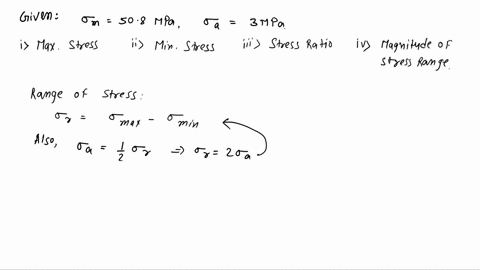 Given: σm = 50.8 MPa, σa = 3 MPa
i> Max. Stress ii> Min. Stress iii> Stress Ratio iv> Magnitude of
Stress Range.
Range of Stress:
σr = σmax - σmin
Also, σa = 1/2 σr => σr = 2σa